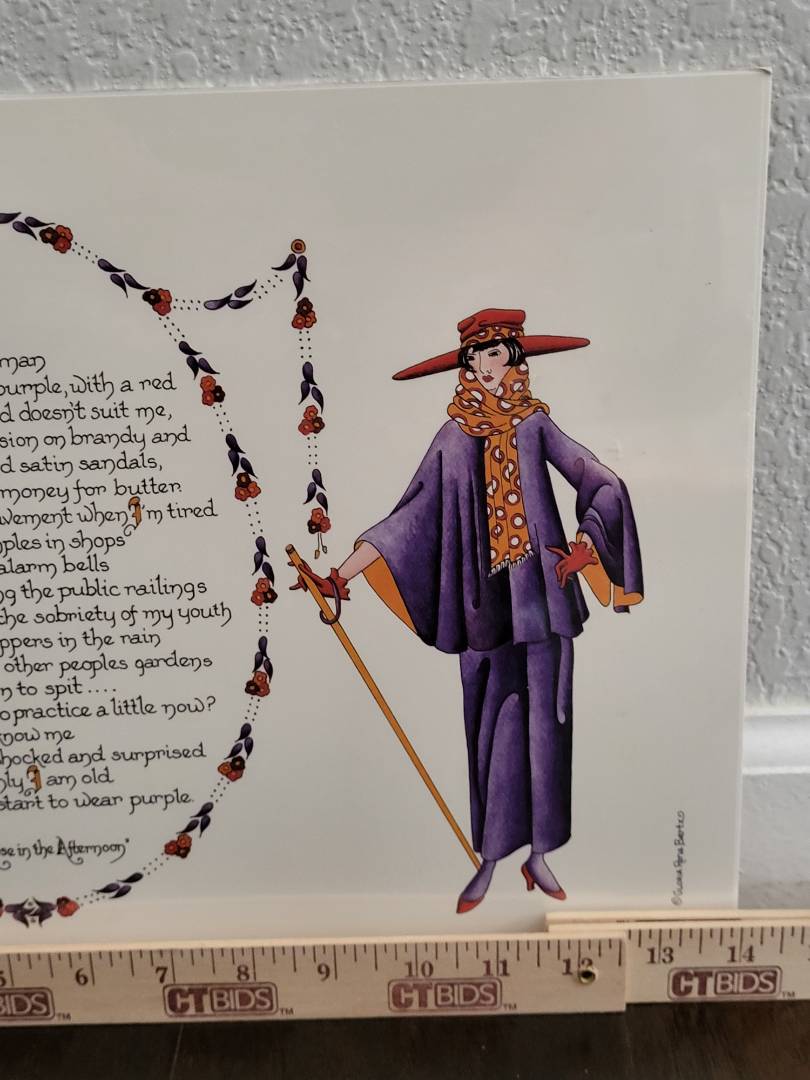 man
purple, with a red
d doesn't suit me,
sion on brandy and
d satin sandals,
money for butter.
vement when I'm tired
ples in shops
alarm bells
ng the public railings
the sobriety of my youth
ppers in the rain
other peoples gardens
n to spit ....
o practice a little now?
know me
hocked and surprised
nly I am old
start to wear purple.
se in the Afternoon"
5 6 7 8 9 10 11 12 13 14
BIDS™ CTBIDS™ CTBIDS™ CTBIDS™